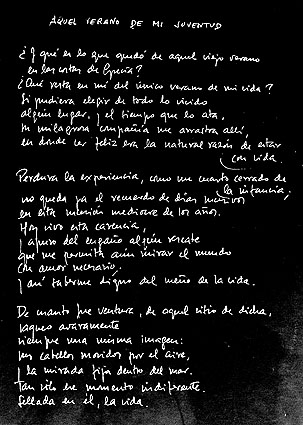 AQUEL VERANO DE MI JUVENTUD
¿Y qué es lo que quedó de aquel viejo verano
en las costas de Grecia?
¿Qué resta en mí del único verano de mi vida?
Si pudiera elegir de todo lo vivido
algún lugar, y el tiempo que lo ata,
su milagrosa compañía me arrastra allí,
en donde ser feliz era la natural razón de estar
con vida.
Perdura la experiencia, como un cuarto cerrado de
la infancia;
no queda ya el recuerdo de días sucesivos
en esta sucesión mediocre de los años.
Hoy vivo esta carencia,
y apuro del engaño algún rescate
que me permita aún mirar el mundo
con amor necesario;
y así saberme digno del sueño de la vida.
De cuanto fue ventura, de aquel sitio de dicha,
saqueo avaramente
siempre una misma imagen:
sus cabellos movidos por el aire,
y la mirada fija dentro del mar.
Tan sólo ese momento indiferente.
Sellada en él, la vida.